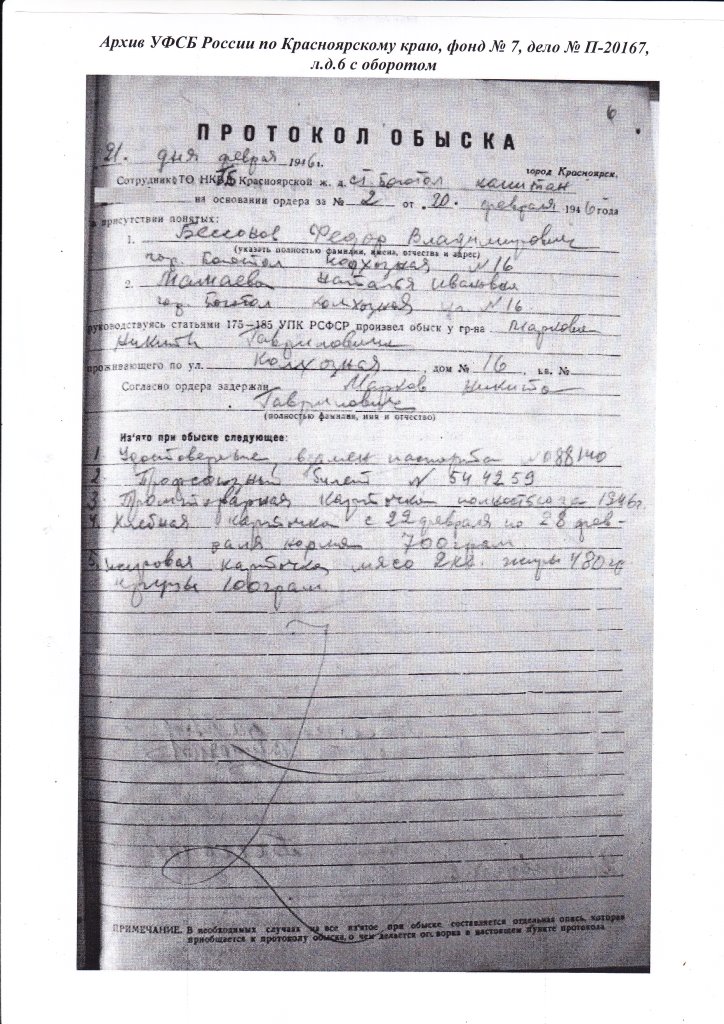 Архив УФСБ России по Красноярскому краю, фонд № 7, дело № П-20167,
л.д.6 с оборотом
6
ПРОТОКОЛ ОБЫСКА
21. дня февраля 1946 г.
город Красноярск.
Сотрудник ТО НКГБ Красноярской ж. д. ст. Боготол капитан
на основании ордера за № 2 от „20" февраля 1946 года
в присутствии понятых:
1. Бессонов Федор Владимирович
(указать полностью фамилии, имена, отчества и адрес)
гор. Боготол Колхозная № 16
2. Мамаева Наталья Ивановна
гор. Боготол Колхозная ул № 16.
руководствуясь статьями 175—185 УПК РСФСР произвел обыск у гр-на Маркова
Никиты Гавриловича
проживающего по ул. Колхозная, дом № 16, кв. №
Согласно ордера задержан Марков Никита
Гаврилович
(полностью фамилии, имя и отчество)
Из'ято при обыске следующее:
1. Удостоверенье, времен паспорта № 088140
2. Профсоюзный билет № 544259
3. Промтоварная карточка полностью за 1946 г.
4. Хлебная карточка с 22 февраля по 28 фев-
раля норма 700 грам
5. карточка мясо 2 кг. жиры 480 гр
крупы 100 грам.
ПРИМЕЧАНИЕ. В необходимых случаях на все из'ятое при обыске составляется отдельная опись, которая
приобщается к протоколу обыска, о чем делается оговорка в настоящем пункте протокола